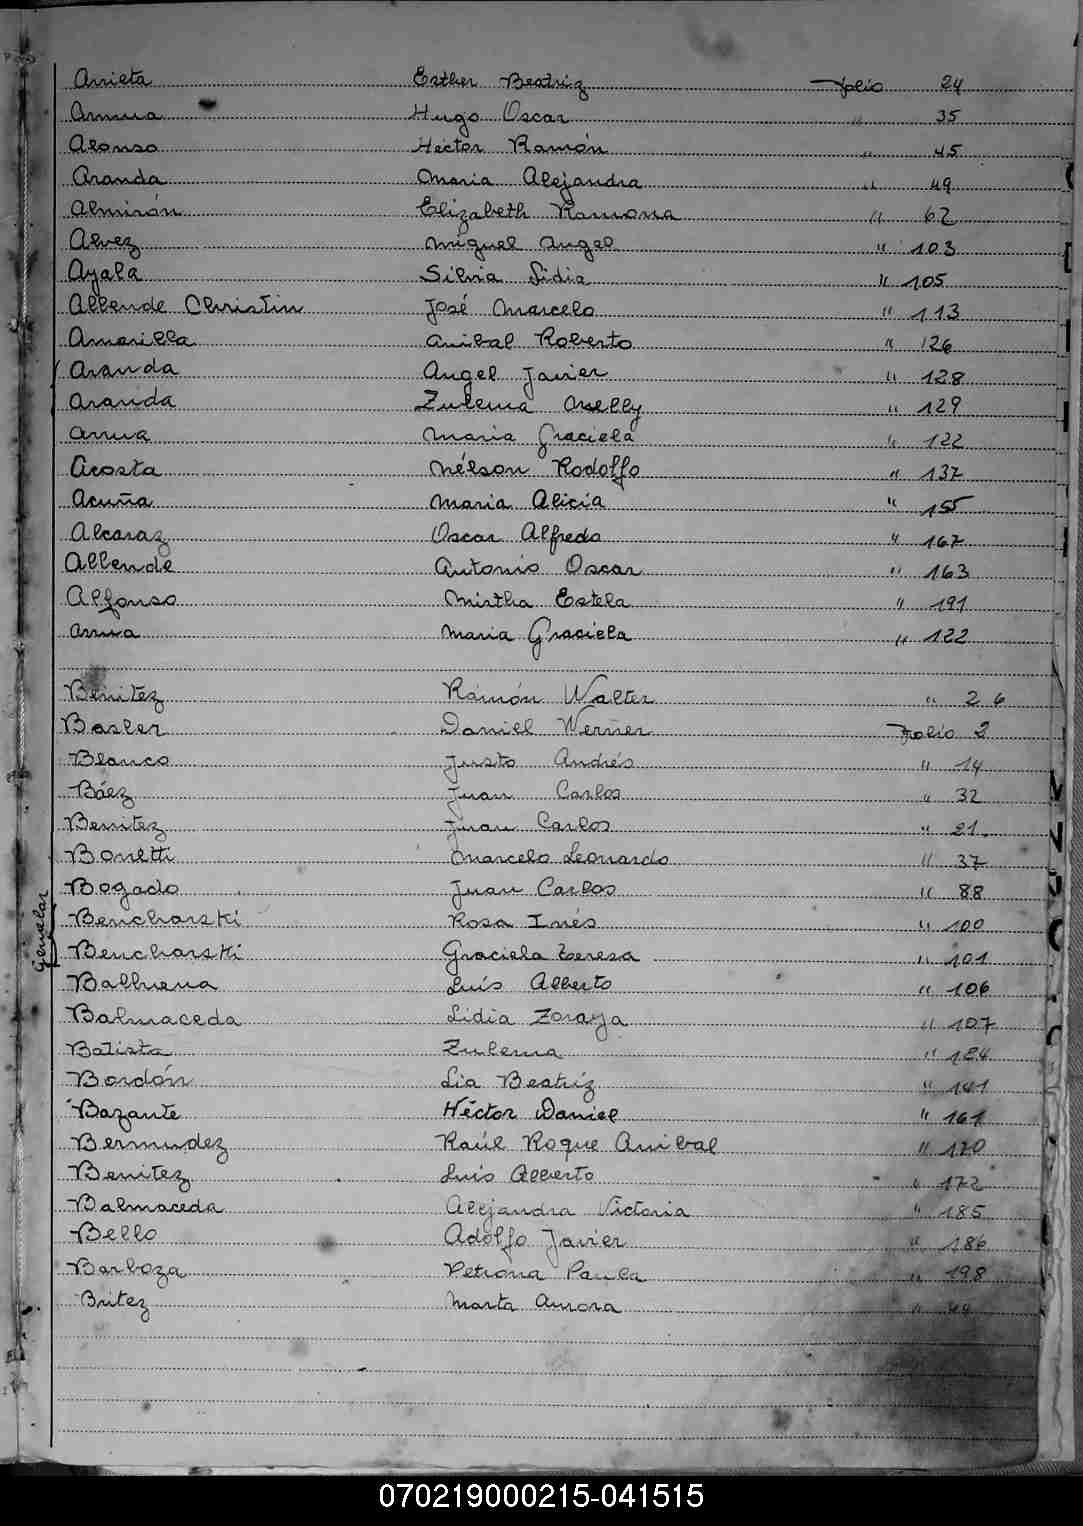 Arrieta Esther Beatriz Folio 24
Armua Hugo Oscar " 35
Alonso Hector Ramón " 45
Aranda Maria Alejandra " 49
Almirón Elizabeth Ramona " 62
Alvez Miguel Angel " 103
Ayala Silvia Lidia " 105
Allende Christin José Marcelo " 113
Amarilla Anibal Roberto " 126
Aranda Angel Javier " 128
Aranda Zulema Nelly " 129
Arrua Maria Graciela " 122
Acosta Nélson Rodolfo " 137
Acuña Maria Alicia " 155
Alcaraz Oscar Alfredo " 167
Allende Antonio Oscar " 163
Alfonso Mirtha Estela " 191
Arrua Maria Graciela " 122
Benitez Ramón Walter " 26
Basler Daniel Werner Folio 2
Blanco Justo Andrés " 14
Báez Juan Carlos " 32
Benitez Juan Carlos " 21
Bonetti Marcelo Leonardo " 37
Bogado Juan Carlos " 88
Bencharski Rosa Inés " 100
Gemelas
Bencharski Graciela Teresa " 101
Balbuena Luis Alberto " 106
Balmaceda Lidia Zoraya " 107
Batista Zulema " 124
Bordón Lia Beatríz " 141
Bazante Héctor Daniel " 161
Bermudez Raúl Roque Anibal " 170
Benitez Luis Alberto " 172
Balmaceda Alejandra Victoria " 185
Bello Adolfo Javier " 186
Barboza Petrona Paula " 198
Britez Marta Aurora "
070219000215-041515